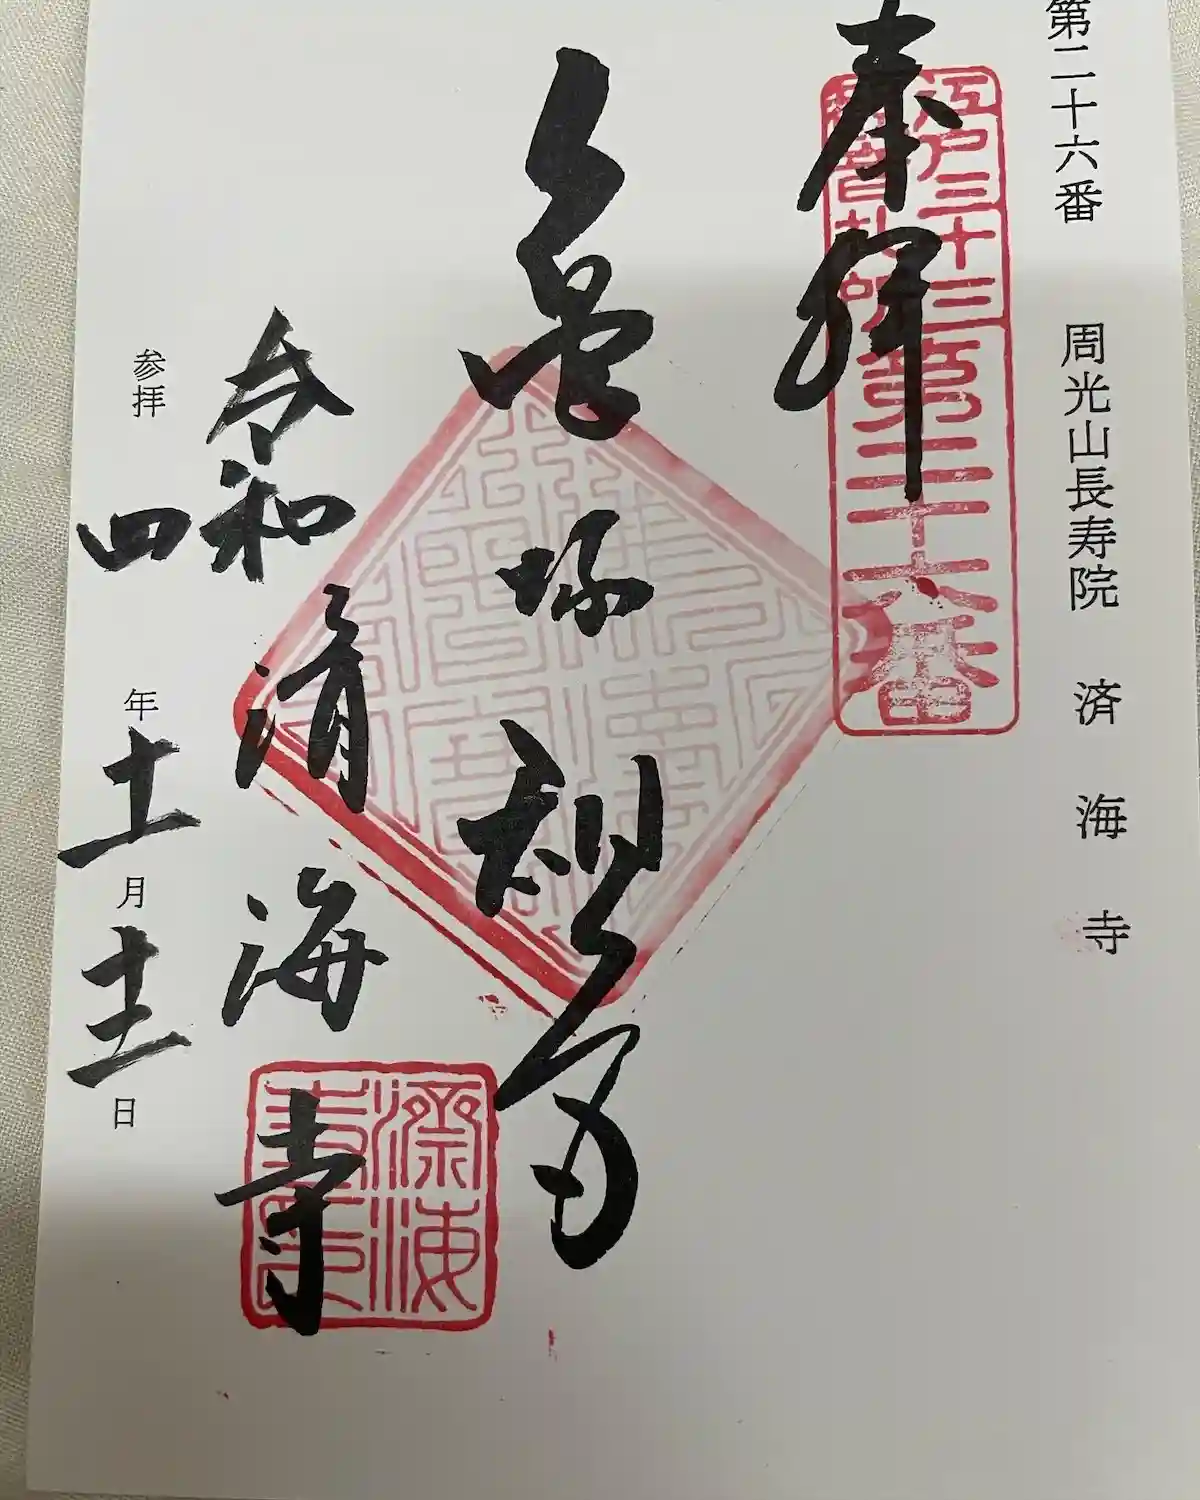 第二十六番 周光山長寿院 済海寺
奉拝
江戸三十三
観音札所
第二十六番
亀塚観音
令和
済海寺
濟海
寺印
参拝 四年十一月十二日